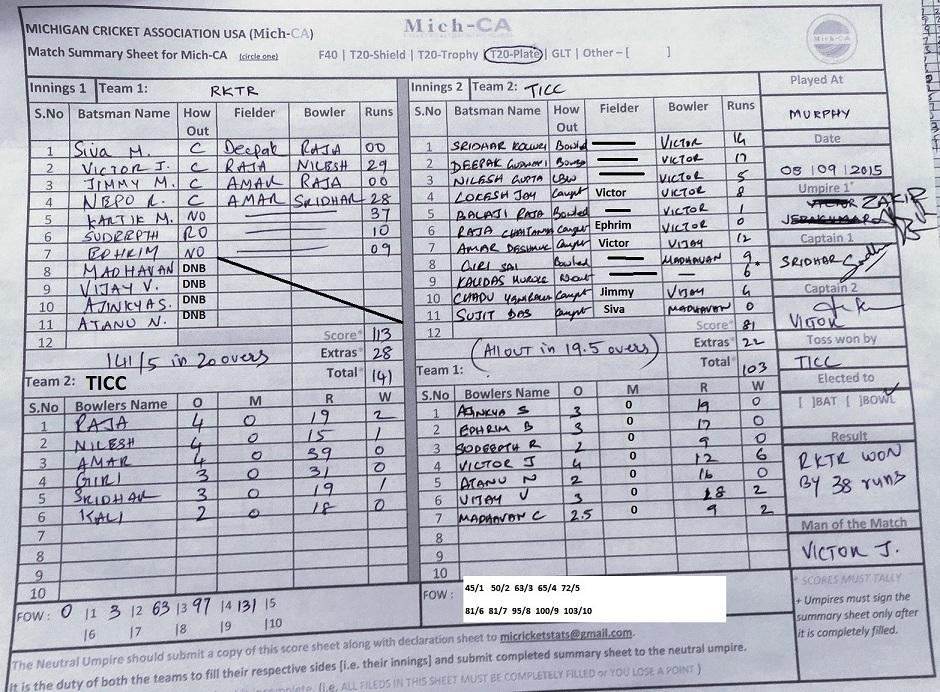 Mich-CA
MICHIGAN CRICKET ASSOCIATION USA (Mich-CA)
Match Summary Sheet for Mich-CA (circle one) F40 | T20-Shield | T20-Trophy | T20-Plate | GLT | Other – [ ]
Innings 1 Team 1: RKTR
S.No Batsman Name How Out Fielder Bowler Runs
1 Siva M. C Deepak RAJA 00
2 VICTOR J. C RAJA NILESH 29
3 JIMMY M. C AMAR RAJA 00
4 NEPO R. C AMAR SRIDHAR 28
5 KARTIK M. NO 37
6 SUDEEPTH RO 10
7 EPHRIM NO 09
8 MADHAVAN DNB
9 VIJAY V. DNB
10 AJINKYA S. DNB
11 ATANU N. DNB
12
Score* 113
141/5 in 20 overs Extras* 28
Total* 141
Team 2: TICC
S.No Bowlers Name O M R W
1 RAJA 4 0 19 2
2 NILESH 4 0 15 1
3 AMAR 4 0 39 0
4 GIRI 3 0 31 0
5 SRIDHAR 3 0 19 1
6 KALI 2 0 18 0
7
8
9
10
FOW : 0 |1 3 |2 63 |3 97 |4 131 |5
|6 |7 |8 |9 |10
Innings 2 Team 2: TICC
S.No Batsman Name How Out Fielder Bowler Runs
1 SRIDHAR Bowled VICTOR 14
2 DEEPAK Bowled VICTOR 17
3 NILESH GUPTA LBW VICTOR 5
4 LOKESH JOY Caught Victor VICTOR 8
5 BALAJI RAJA Bowled VICTOR 1
6 RAJA Caught Ephrim VICTOR 0
7 AMAR Caught Victor VIJAY 12
8 GIRI SAI Bowled MADHAVAN 9
9 KALIDAS Not out 6
10 Caught Jimmy VIJAY
11 SUJIT DAS Caught Siva MADHAVAN 0
12
Score* 81
(All out in 19.5 overs) Extras* 22
Total 103
Team 1:
S.No Bowlers Name O M R W
1 AJINKYA S 3 0 19 0
2 EPHRIM B 3 0 17 0
3 SUDEEPTH R 2 0 9 0
4 VICTOR J 4 0 12 6
5 ATANU N 2 0 16 0
6 VIJAY V 3 0 18 2
7 MADHAVAN C 2.5 0 9 2
8
9
10
FOW : 45/1 50/2 63/3 65/4 72/5
81/6 81/7 95/8 100/9 103/10
Mich-CA
Played At
MURPHY
Date
08/09/2015
Umpire 1*
ZAKIR
Captain 1
SRIDHAR
Captain 2
VICTOR
Toss won by
TICC
Elected to
[ ]BAT [ ]BOWL
Result
RKTR WON
BY 38 runs
Man of the Match
VICTOR J.
* SCORES MUST TALLY
+ Umpires must sign the
summary sheet only after
it is completely filled.
The Neutral Umpire should submit a copy of this score sheet along with declaration sheet to micricketstats@gmail.com.
It is the duty of both the teams to fill their respective sides [i.e. their innings] and submit completed summary sheet to the neutral umpire.
(i.e. ALL FILEDS IN THIS SHEET MUST BE COMPLETED FILLED or YOU LOSE A POINT )